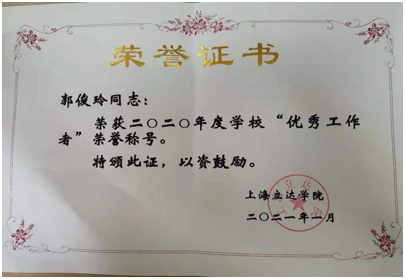 荣誉证书
郭俊玲同志：
荣获二〇二〇年度学校“优秀工作
者”荣誉称号。
特颁此证，以资鼓励。
上海立达学院
二〇二一年一月